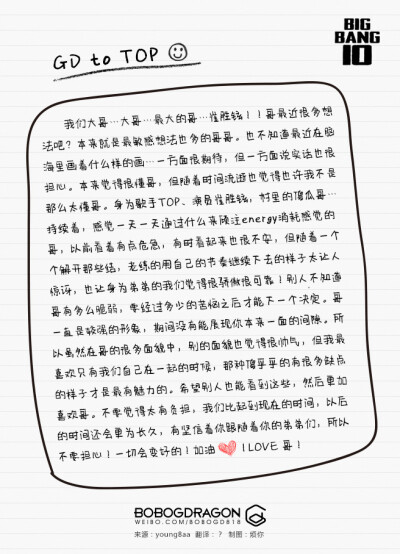 GD to TOP
BIG
BANG
10
我们大哥…大哥…最大的哥…崔胜铉！！哥最近很多想
法吧？本来就是最敏感想法也多的哥哥。也不知道最近在脑
海里画着什么样的画…一方面很期待，但一方面说实话也很
担心。本来觉得很懂哥，但随着时间流逝也觉得也许我不是
那么太懂哥。身为歌手TOP、演员崔胜铉，村里的傻瓜哥…
持续着，感觉一天一天通过什么来倾注energy消耗感觉的
哥，以前看着有点危急，有时看起来也很不安，但随着一个
个解开那些结，老练的用自己的节奏继续下去的样子太让人
惊讶，也让身为弟弟的我们觉得很骄傲很可靠！别人不知道
哥有多么脆弱，要经过多少的苦恼之后才能下一个决定。哥
一直是较强的形象，期间没有能展现你本来一面的间隙。所
以虽然在哥的很多面貌中，别的面貌也觉得很帅气，但我最
喜欢只有我们自己在一起的时候，那种傻乎乎的有很多缺点
的样子才是最有魅力的。希望别人也能看到这些，然后更加
喜欢哥。不要觉得太有负担，我们比起到现在的时间，以后
的时间还会更为长久，有坚信着你跟随着你的弟弟们，所以
不要担心！一切会变好的！加油 I LOVE 哥！
BOBOGDRAGON
WEIBO.COM/BOBOGD818
来源：young8aa 翻译：？ 制图：掂你